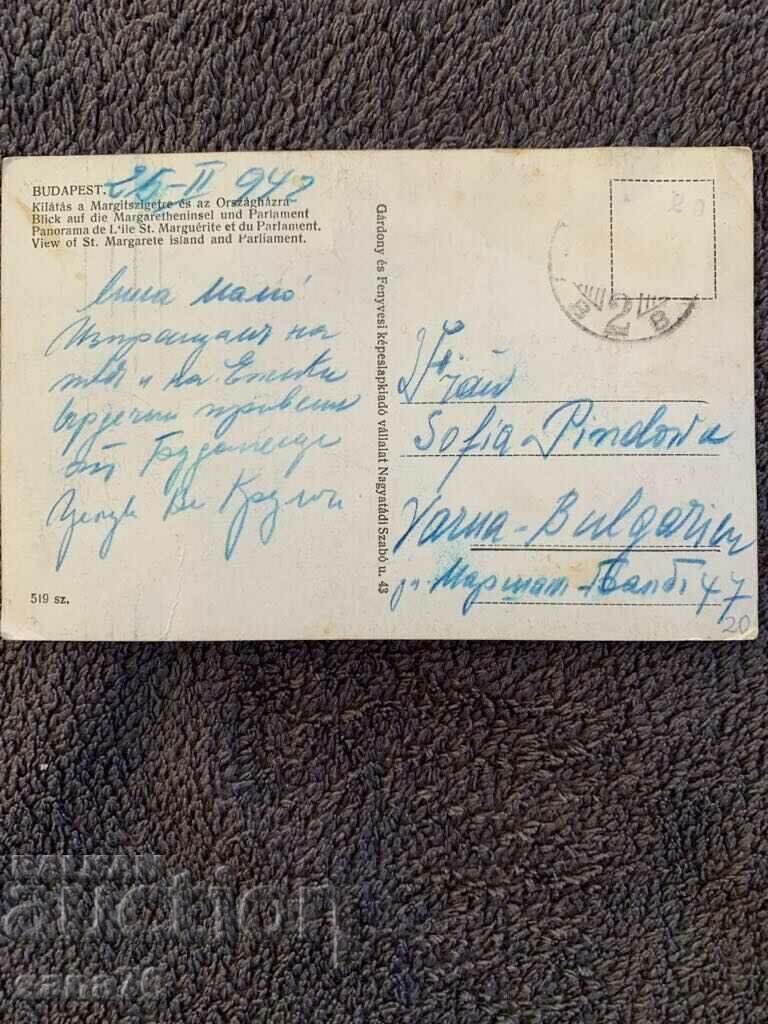 BUDAPEST. 25-II 942
Kilátás a Margitszigetre és az Országházra
Blick auf die Margaretheninsel und Parlament
Panorama de L'ile St. Marguérite et du Parlament.
View of St. Margarete island and Parliament.
Мамо!
Изпращамъ на
тебъ и на Енчки
сърдечни привети
отъ Будапеща
519 sz.
Gárdony és Fenyvesi képeslapkiadó vállalat Nagyatádi Szabó u. 43
20
2
B
Frau
Sofia Pindowa
Varna-Bulgarien
ул. Маршал-Балбо 47
20
BALKAN
auction